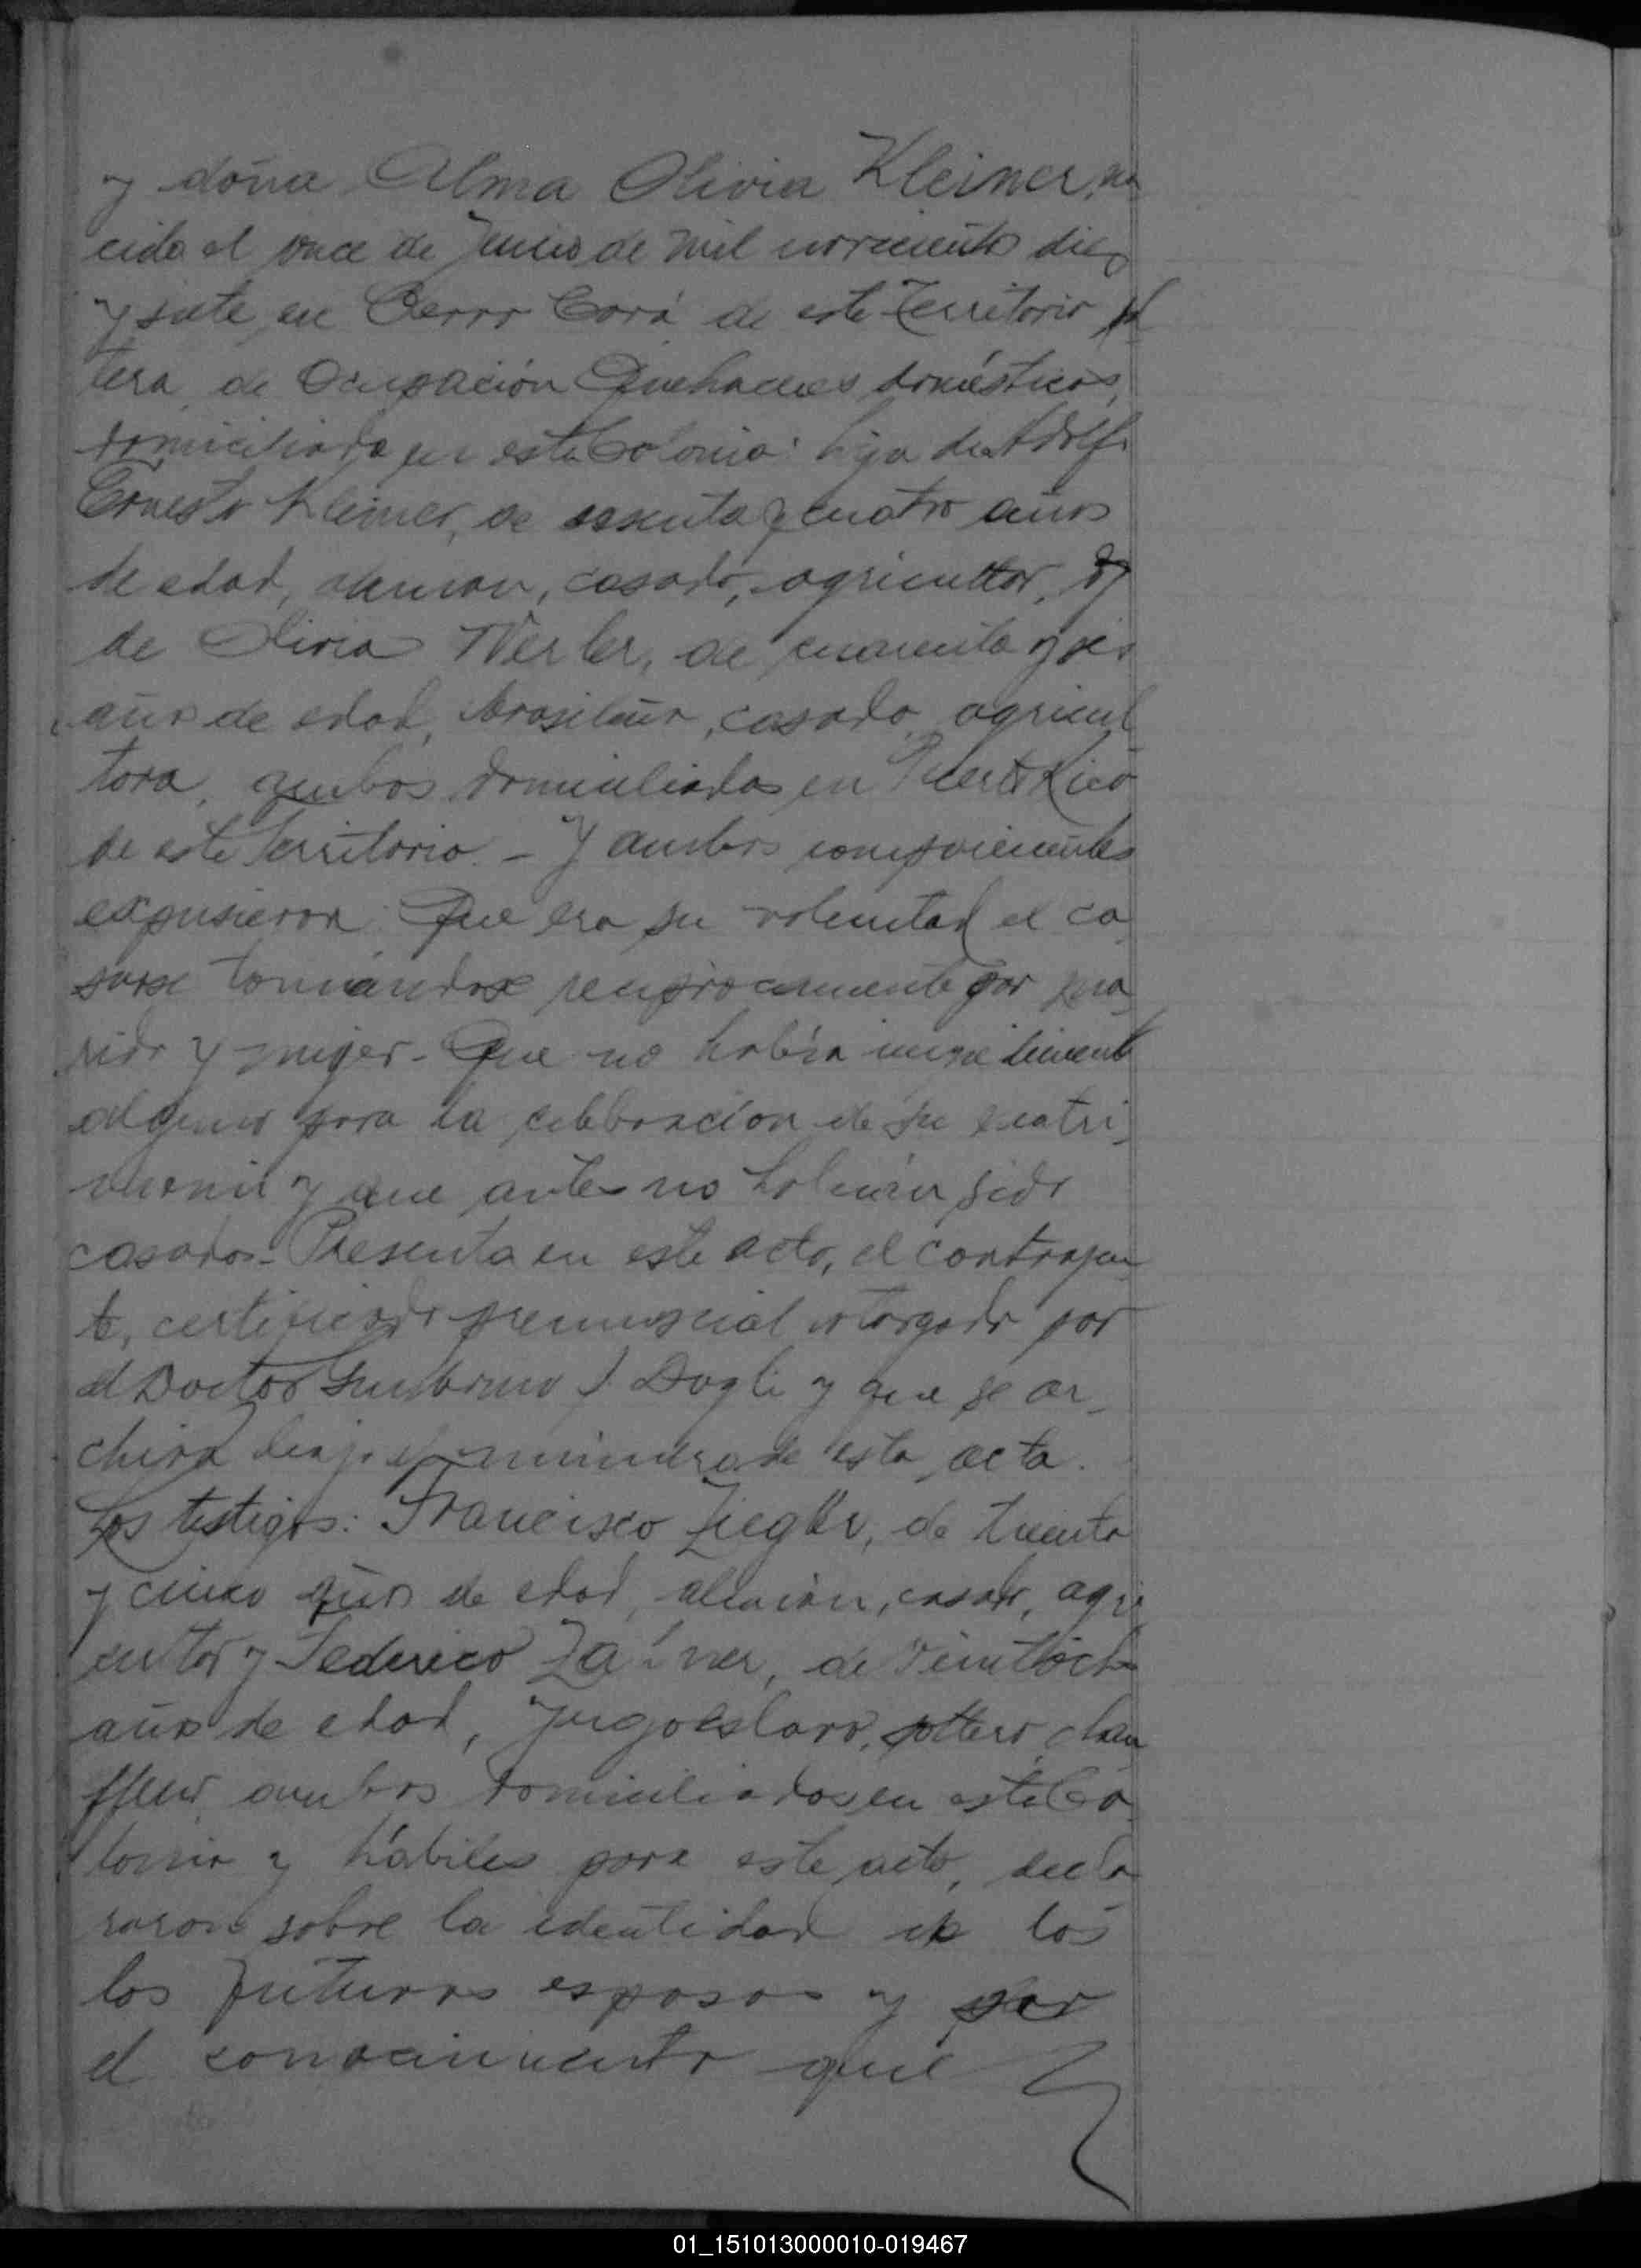 y doña Alma Olivia Kleiner, na
cida el once de Junio de mil novecientos diez
y siete, en Cerro Corá de este Territorio, sol
tera, de Ocupación Quehaceres domésticos,
domiciliada en esta Colonia: hija de Adolfo
Ernesto Kleiner, de sesenta y cuatro años
de edad, aleman, casado, agricultor, y
de Olivia Werler, de cuarenta y seis
años de edad, brasileña, casada, agricul
tora, ambos domiciliados en Puerto Rico
de este Territorio. - Y ambos comparecientes
expusieron: Que era su voluntad el ca
sarse tomándose reciprocamente por ma
rido y mujer - Que no habia impedimento
alguno para la celebración de su matri-
monio y que antes no habian sido
casados - Presenta en este acto, el contrayen
te, certificado prenupcial otorgado por
el Doctor J. Dogli y que se ar-
chiva bajo el número de esta acta.
Los testigos: Francisco Ziegler, de treinta
y cinco años de edad, alemán, casado, agri
cultor y Federico de veintiocho
años de edad, Yugoeslavo, soltero, chau
ffeur, ambos domiciliados en esta Co
lonia y hábiles para este acto, decla
raron sobre la identidad de los
los futuros esposos y por
el conocimiento que
01_151013000010-019467